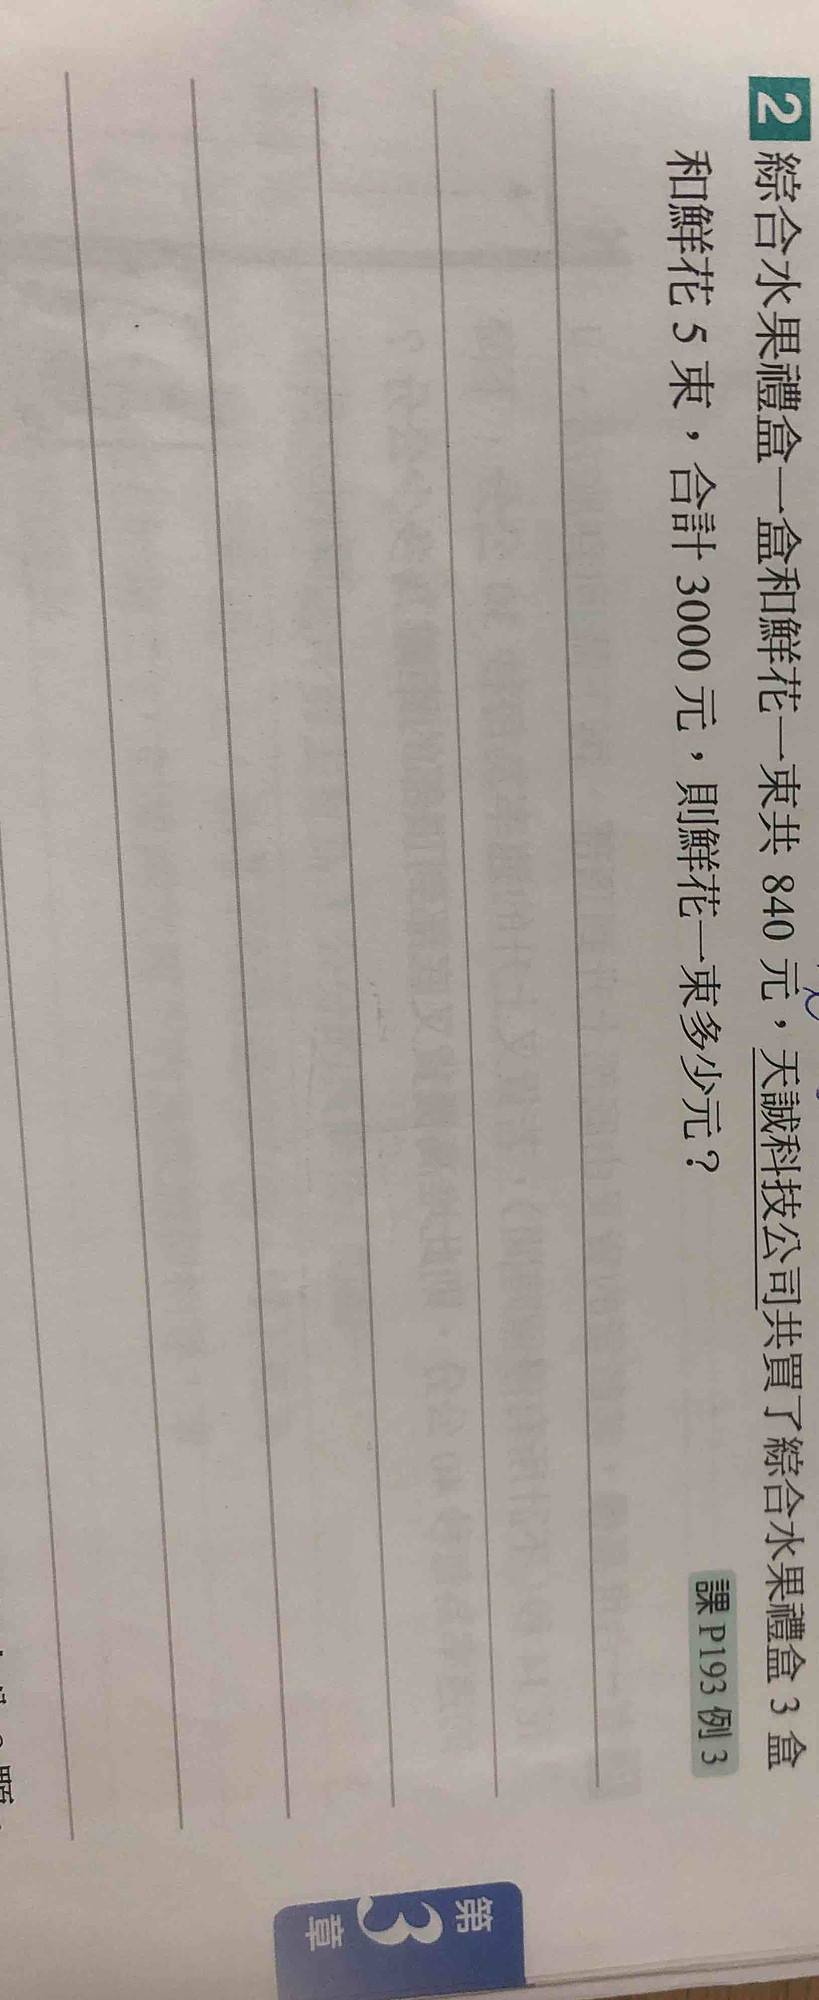 2 綜合水果禮盒一盒和鮮花一束共 840 元，天誠科技公司共買了綜合水果禮盒 3 盒
和鮮花 5 束，合計 3000 元，則鮮花一束多少元？
課 P193 例 3
第3章